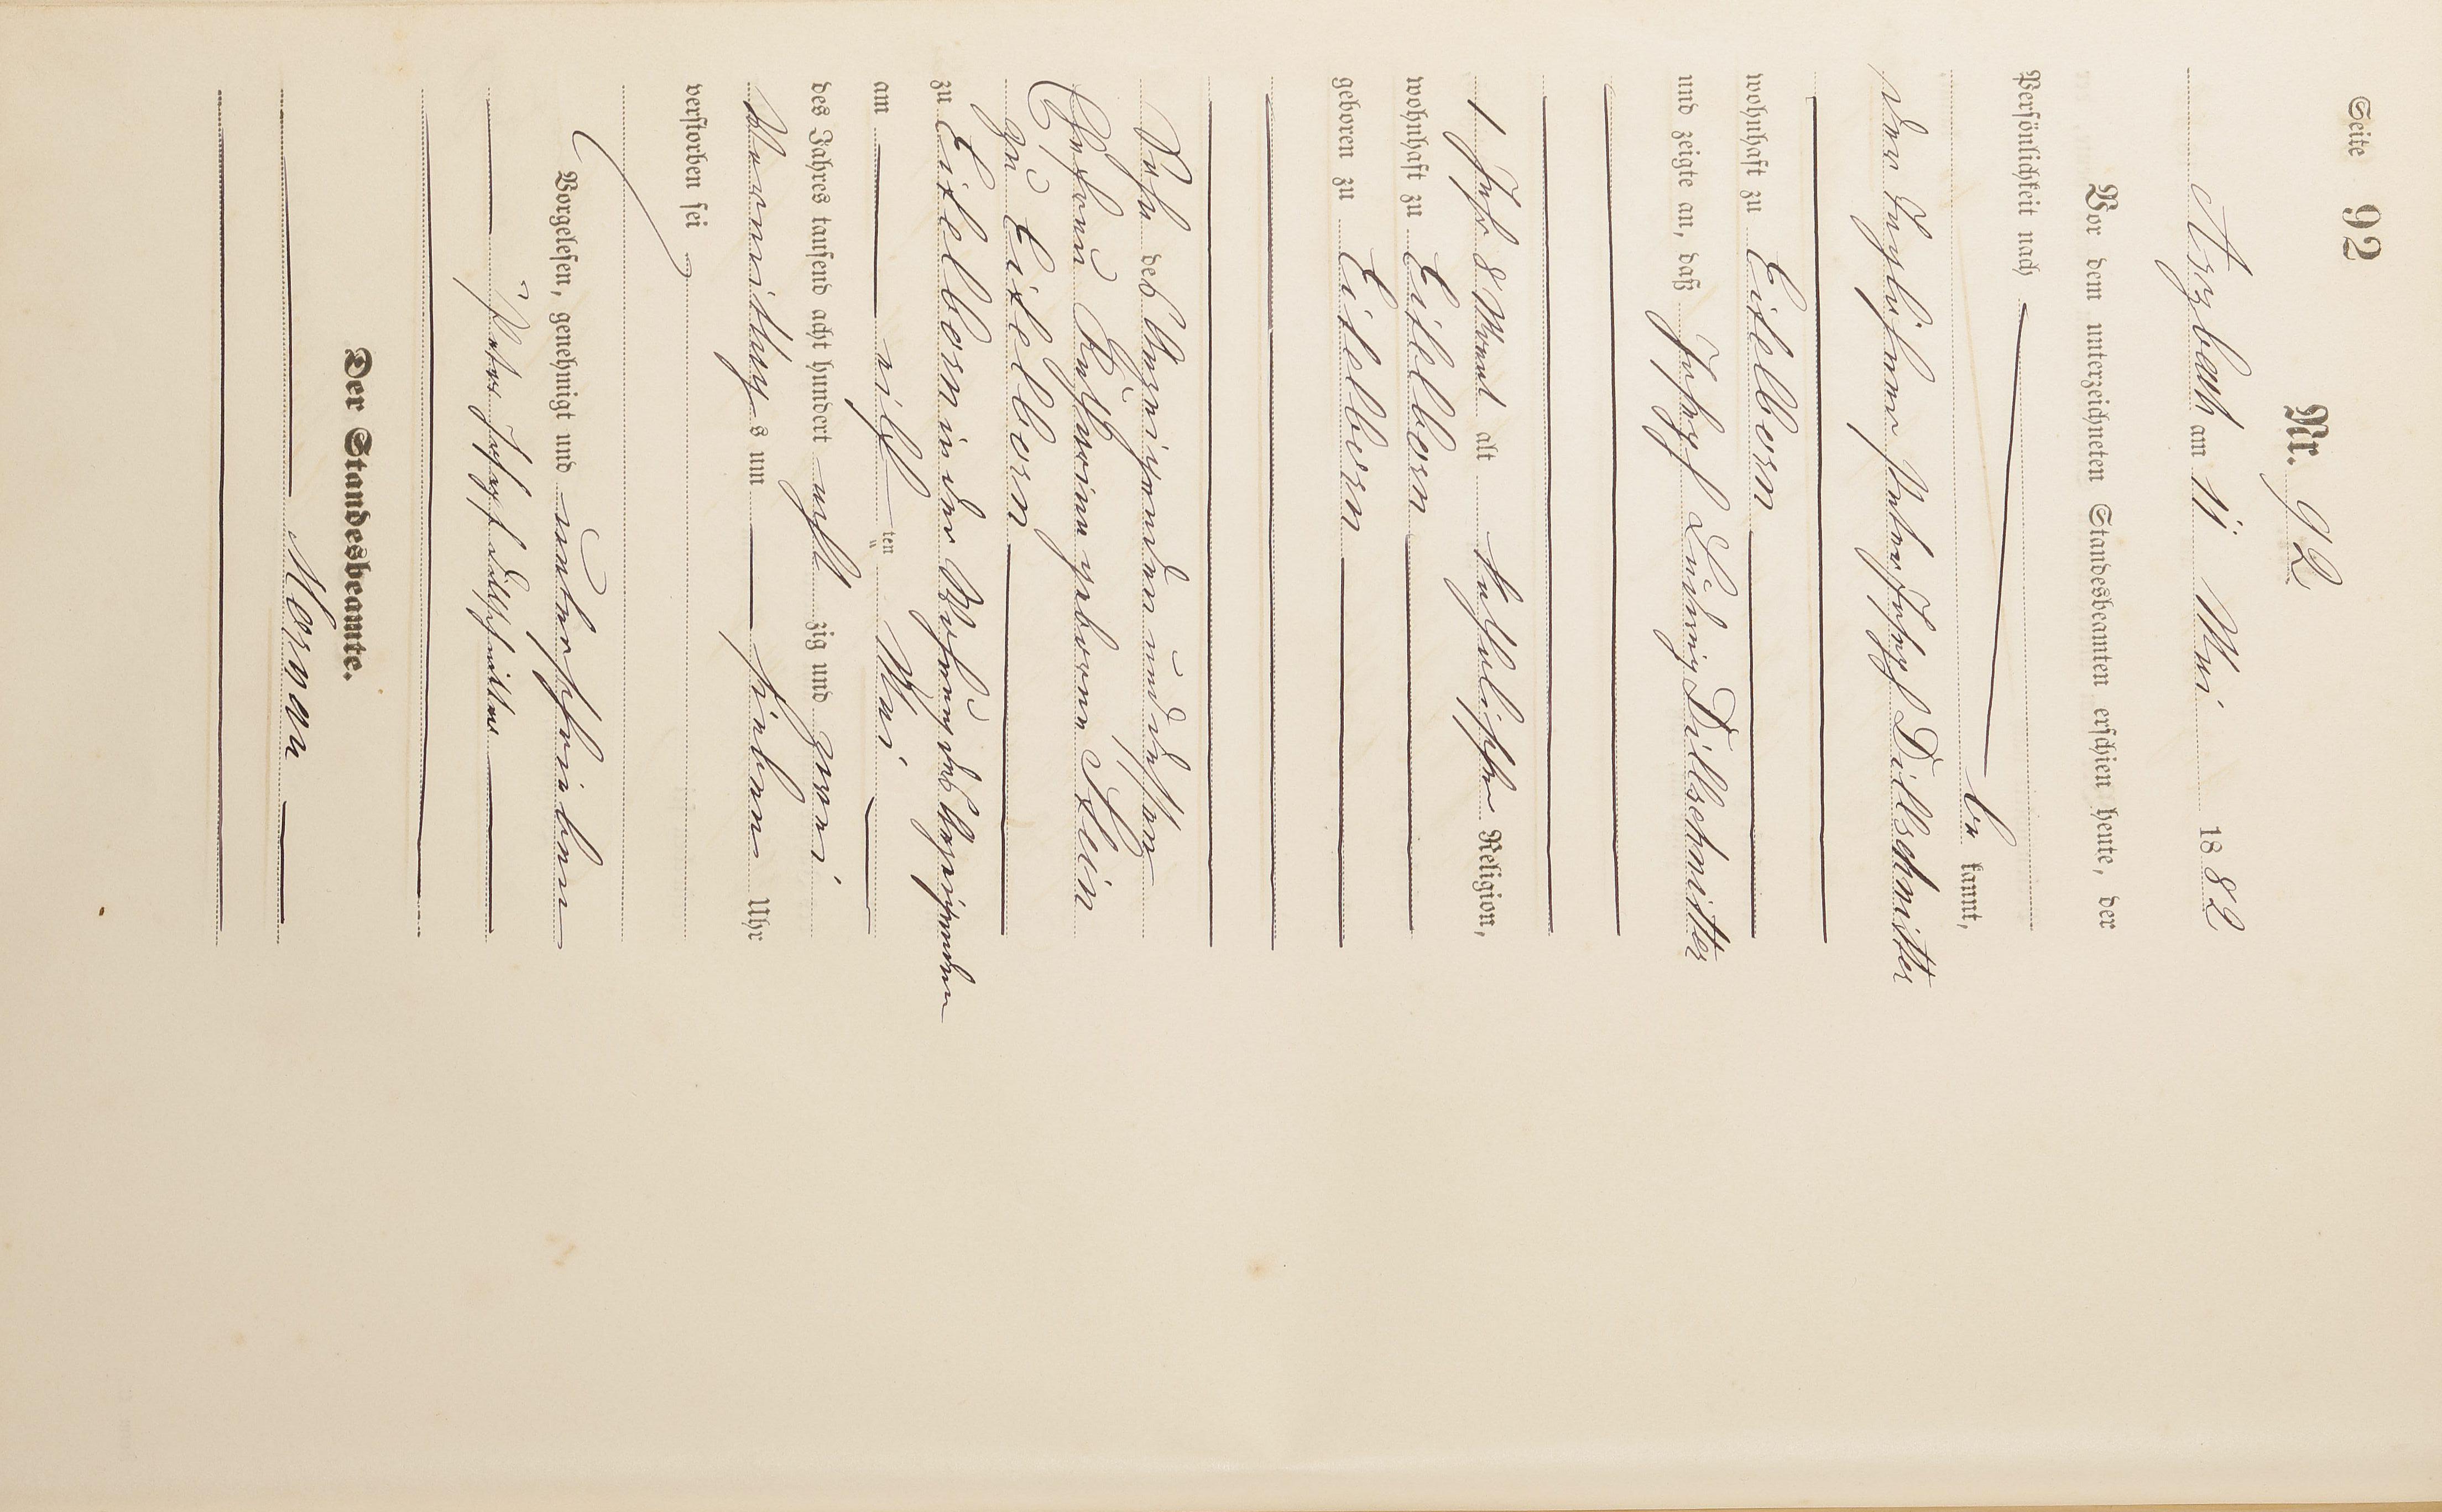 Seite 92
Nr. 92
Arzbach am 11 Mai 1882
Vor dem unterzeichneten Standesbeamten erschien heute, der
Persönlichkeit nach
be kannt,
der Taglöhner Peter Joseph Dillschnitter
wohnhaft zu Eitelborn
und zeigte an, daß Joseph Ludwig Dillschnitter
1 Jahr 8 Monat alt katholischer Religion,
wohnhaft zu Eitelborn
geboren zu Eitelborn
Sohn des Anzeigenden und dessen
Ehefrau Katharina geborene Stein
zu Eitelborn
zu Eitelborn in der Wohnung des Anzeigenden
am elf ten Mai
des Jahres tausend acht hundert acht zig und zwei
Vormittags um sieben Uhr
verstorben sei
Vorgelesen, genehmigt und unterschrieben
Peter Josepf dillschnitter
Der Standesbeamte.